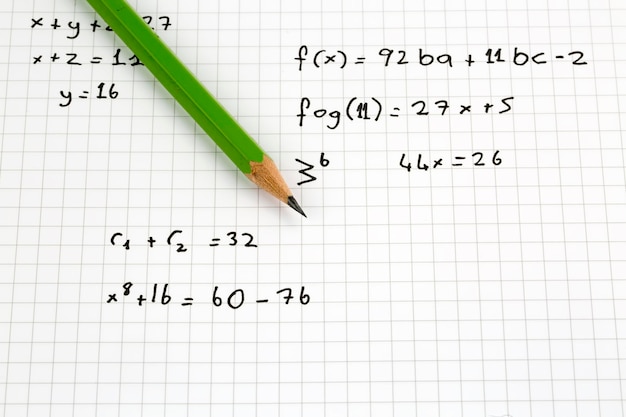 x + y + 27
x + z = 11
y = 16
f(x) = 92ba + 11bc - 2
fog(11) = 27x + 5
∑⁶ 44x = 26
r₁ + r₂ = 32
x⁸ + 16 = 60 - 76